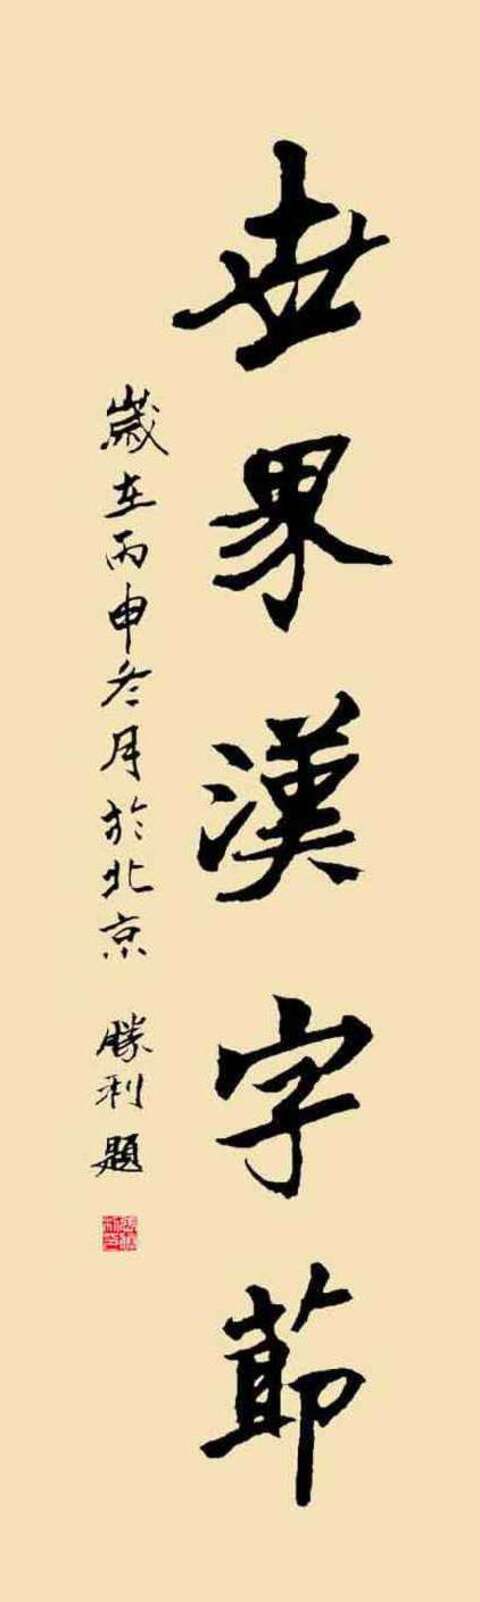 世界漢字節
歲在丙申冬月於北京 勝利題